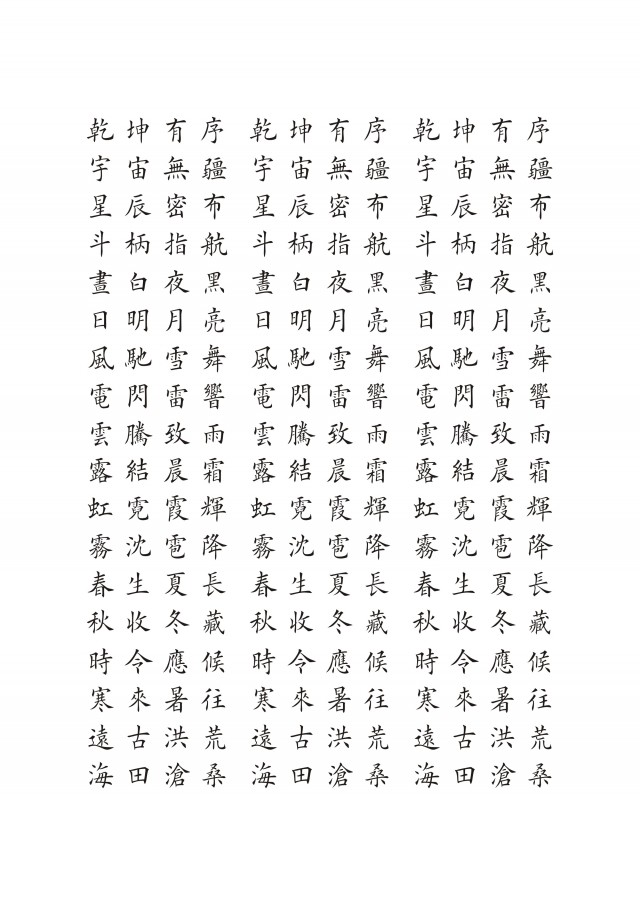 乾坤有序 乾坤有序 乾坤有序
宇宙無疆 宇宙無疆 宇宙無疆
星辰密布 星辰密布 星辰密布
斗柄指航 斗柄指航 斗柄指航
晝白夜黑 晝白夜黑 晝白夜黑
日明月亮 日明月亮 日明月亮
風馳雪舞 風馳雪舞 風馳雪舞
電閃雷響 電閃雷響 電閃雷響
雲騰致雨 雲騰致雨 雲騰致雨
露結晨霜 露結晨霜 露結晨霜
虹霓霞輝 虹霓霞輝 虹霓霞輝
霧沈雹降 霧沈雹降 霧沈雹降
春生夏長 春生夏長 春生夏長
秋收冬藏 秋收冬藏 秋收冬藏
時令應候 時令應候 時令應候
寒來暑往 寒來暑往 寒來暑往
遠古洪荒 遠古洪荒 遠古洪荒
海田滄桑 海田滄桑 海田滄桑